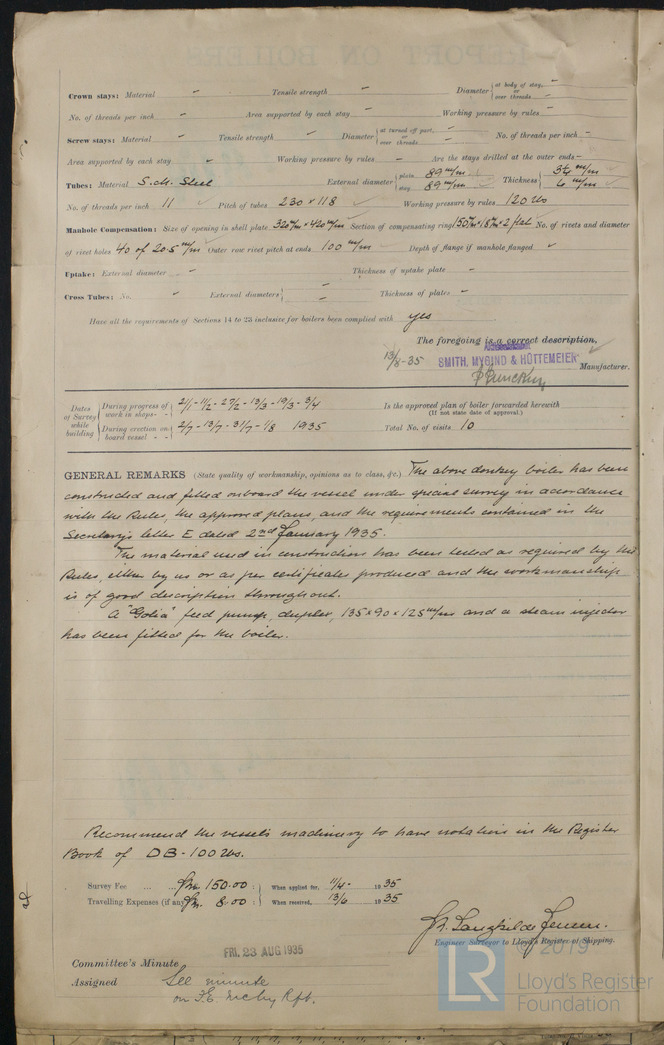 REPORT ON BOILERS
Crown stays: Material - Tensile strength - Diameter { at body of stay, - or over threads -
No. of threads per inch - Area supported by each stay - Working pressure by rules -
Screw stays: Material - Tensile strength - Diameter { at turned off part, - or over threads - No. of threads per inch -
Area supported by each stay - Working pressure by rules - Are the stays drilled at the outer ends -
Tubes: Material S.M. Steel External diameter { plain 89 m/m stay 89 m/m Thickness { 3¼ m/m 6 m/m
No. of threads per inch 11 Pitch of tubes 230 x 118 Working pressure by rules 120 lbs
Manhole Compensation: Size of opening in shell plate 320 m/m x 420 m/m Section of compensating ring 150 m/m x 18 m/m x 2 flat No. of rivets and diameter
of rivet holes 40 of 20.5 m/m Outer row rivet pitch at ends 100 m/m Depth of flange if manhole flanged
Uptake: External diameter - Thickness of uptake plate -
Cross Tubes: No. - External diameters { - - Thickness of plates -
Have all the requirements of Sections 14 to 23 inclusive for boilers been complied with yes
The foregoing is a correct description,
13/8-35 SMITH, MYGIND & HÜTTEMEIER Manufacturer.
Dates of Survey while building { During progress of work in shops - - { 2/1 - 11/2 - 27/2 - 13/3 - 19/3 - 3/4
Is the approved plan of boiler forwarded herewith
(If not state date of approval.)
{ During erection on board vessel - - { 2/7 - 13/7 - 31/7 - 1/8 1935
Total No. of visits 10
GENERAL REMARKS (State quality of workmanship, opinions as to class, &c.) The above donkey boiler has been
constructed and fitted onboard the vessel under special survey in accordance
with the Rules, the approved plans, and the requirements contained in the
Secretary's letter E dated 2nd January 1935.
The material used in construction has been tested as required by the
Rules, either by us or as per certificates produced and the workmanship
is of good description throughout.
A "Golia" feed pump, duplex, 135 x 90 x 125 m/m and a steam injector
has been fitted for the boiler.
Recommend the vessel's machinery to have notation in the Register
Book of DB-100 lbs.
Survey Fee ... ... Kr. 150.00 : } When applied for, 11/4 - 19 35
Travelling Expenses (if any) Kr. 8.00 : } When received, 13/6 19 35
Engineer Surveyor to Lloyd's Register of Shipping.
FRI. 23 AUG 1935
Committee's Minute
Assigned See minute
on F.E. Mchy Rpt.
© 2019
LR Lloyd's Register
Foundation